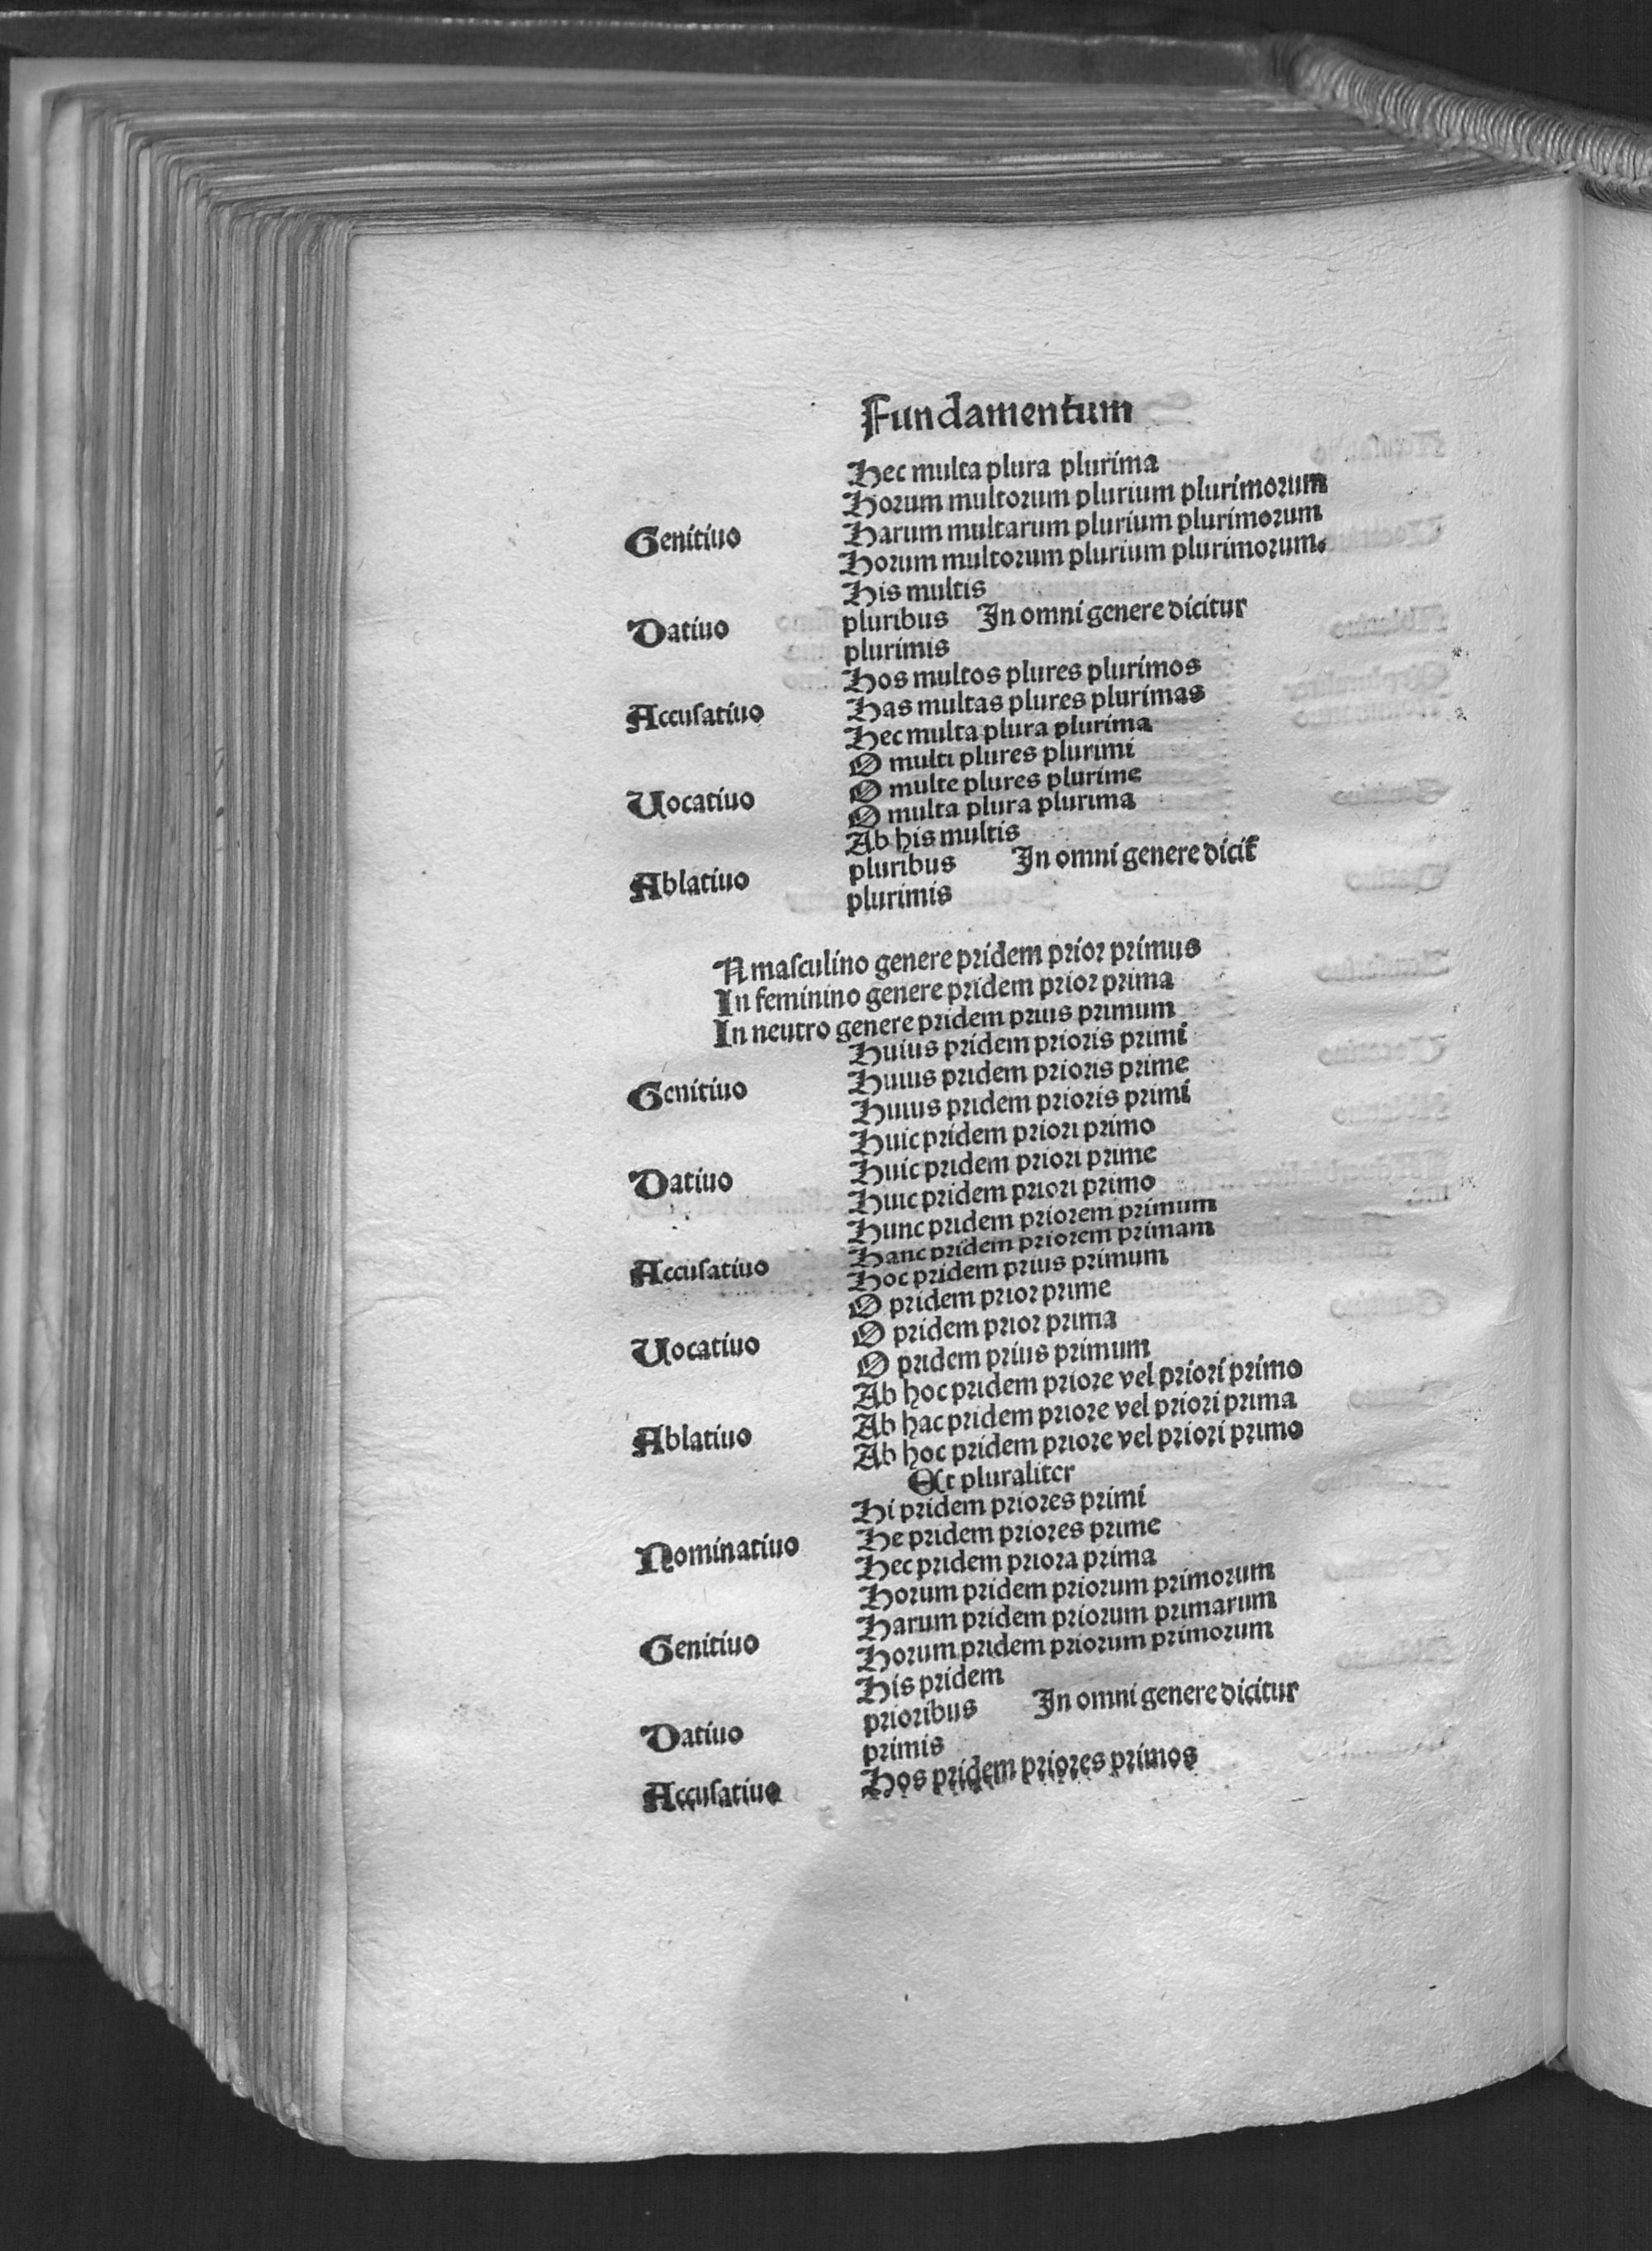 Fundamentum
Hec multa plura plurima
Horum multorum plurium plurimorum
Genitiuo Harum multarum plurium plurimorum
Horum multorum plurium plurimorum.
His multis
Datiuo pluribus In omni genere dicitur
plurimis
Hos multos plures plurimos
Accusatiuo Has multas plures plurimas
Hec multa plura plurima
O multi plures plurimi
Uocatiuo O multe plures plurime
O multa plura plurima
Ab his multis
Ablatiuo pluribus In omni genere dicit᷑
plurimis
In masculino genere pridem prior primus
In feminino genere pridem prior prima
In neutro genere pridem prius primum
Huius pridem prioris primi
Genitiuo Huius pridem prioris prime
Huius pridem prioris primi
Huic pridem priori primo
Datiuo Huic pridem priori prime
Huic pridem priori primo
Hunc pridem priorem primum
Accusatiuo Hanc pridem priorem primam
Hoc pridem prius primum
O pridem prior prime
Uocatiuo O pridem prior prima
O pridem prius primum
Ab hoc pridem priore vel priori primo
Ablatiuo Ab hac pridem priore vel priori prima
Ab hoc pridem priore vel priori primo
Et pluraliter
Hi pridem priores primi
Nominatiuo He pridem priores prime
Hec pridem priora prima
Horum pridem priorum primorum
Genitiuo Harum pridem priorum primarum
Horum pridem priorum primorum
His pridem
Datiuo prioribus In omni genere dicitur
primis
Accusatiuo Hos pridem priores primos